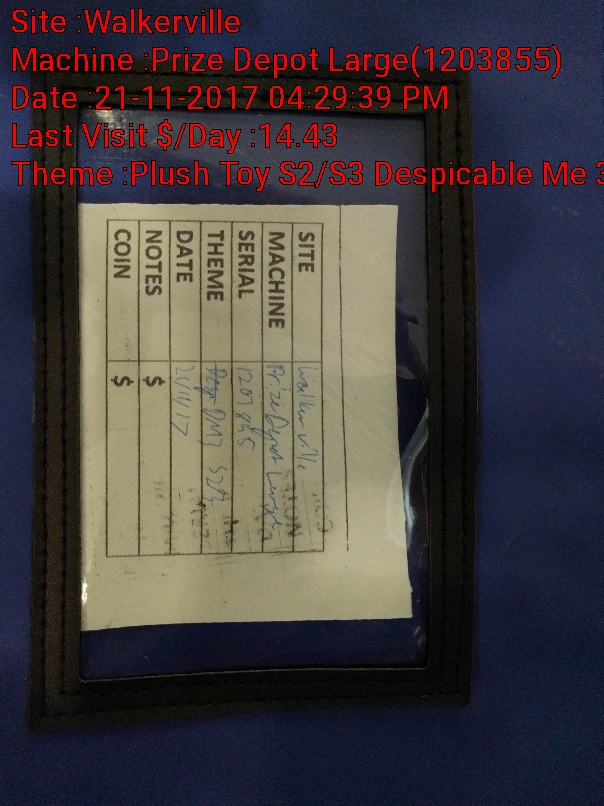 Site :Walkerville
Machine :Prize Depot Large(1203855)
Date :21-11-2017 04:29:39 PM
Last Visit $/Day :14.43
Theme :Plush Toy S2/S3 Despicable Me 3
SITE Walkerville
MACHINE Prize Depot Large
SERIAL
THEME S2/3
DATE
NOTES $
COIN $